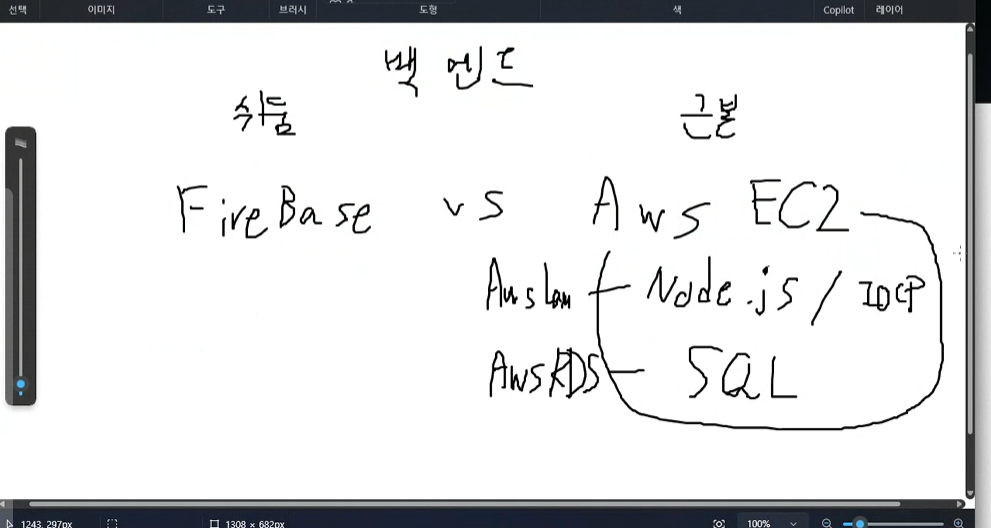 선택 이미지 도구 브러시 도형 색 Copilot 레이어
백 엔드
쉬움 근본
FireBase vs Aws EC2
Aws Lam Node.js / IOCP
AwsRDS SQL
1243, 297px 1308 × 682px 100%